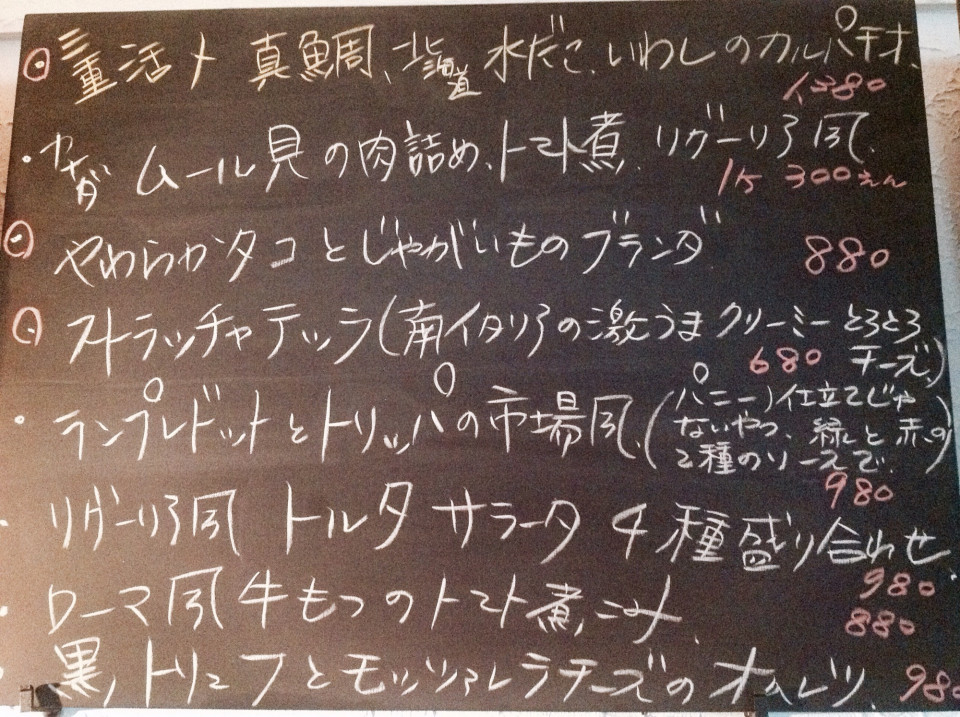 三重活〆 真鯛、北海道 水だこ、いわしのカルパチオ、
1,380
ムール貝の肉詰め、トマト煮、リグーリア風、
1ケ 300えん
やわらかタコとじゃがいものブランダ
880
ストラッチャテッラ(南イタリアの激うまクリーミーとろとろ
680 チーズ)
ランプレドットとトリッパの市場風、(パニーノ仕立てじゃ
ないやつ、緑と赤の
2種のソースで)
980
リグーリア風 トルタサラータ 4種盛り合わせ
980
ローマ風 牛もつのトマト煮こみ、
880
黒トリュフとモッツァレラチーズのオムレツ 980